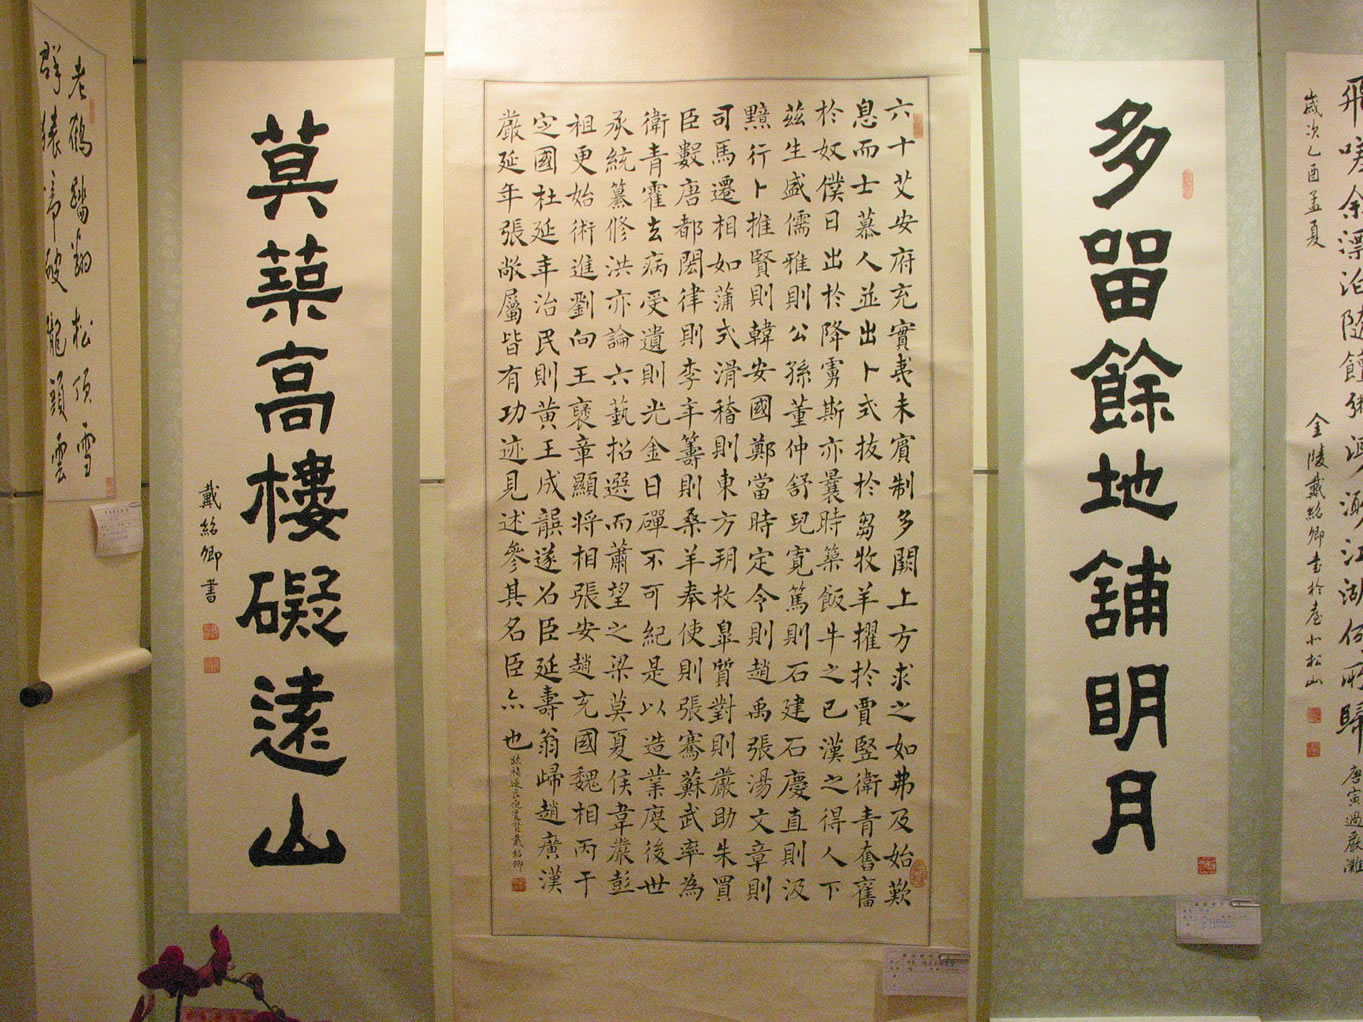 飛嗟余漂泊隨饘粥渺渺江湖何所歸 唐寅過嚴灘
歲次乙酉孟夏 金陵戴紹卿書於臺北松山
多留餘地舖明月
六十艾安府充實夷未賓制多闕上方求之如弗及始歎
息而士慕人並出卜式拔於芻牧羊擢於賈豎衛青奮舊
於奴僕日出於降虜斯亦曩時築飯牛之已漢之得人下
茲生盛儒雅則公孫董仲舒兒寬篤則石建石慶直則汲
黯行卜推賢則韓安國鄭當時定令則趙禹張湯文章則
司馬遷相如蒲式滑稽則東方朔枚皋質對則嚴助朱買
臣數唐都閎律則李年籌則桑羊奉使則張騫蘇武率為
衛青霍去病受遺則光金日磾不可紀是以造業度後世
承統纂修洪亦論六藝招選而蕭望之梁莫夏侯韋嚴彭
祖更始術進劉向王褒章顯將相張安趙充國魏相丙于
定國杜延年治民則黃王成龔遂召臣延壽翁歸趙廣漢
嚴延年張敞屬皆有功迹見述參其名臣亦也
戴紹卿
莫築高樓礙遠山
戴紹卿書
老鶴蹋翻松頂雪
群猿啼破隴頭雲